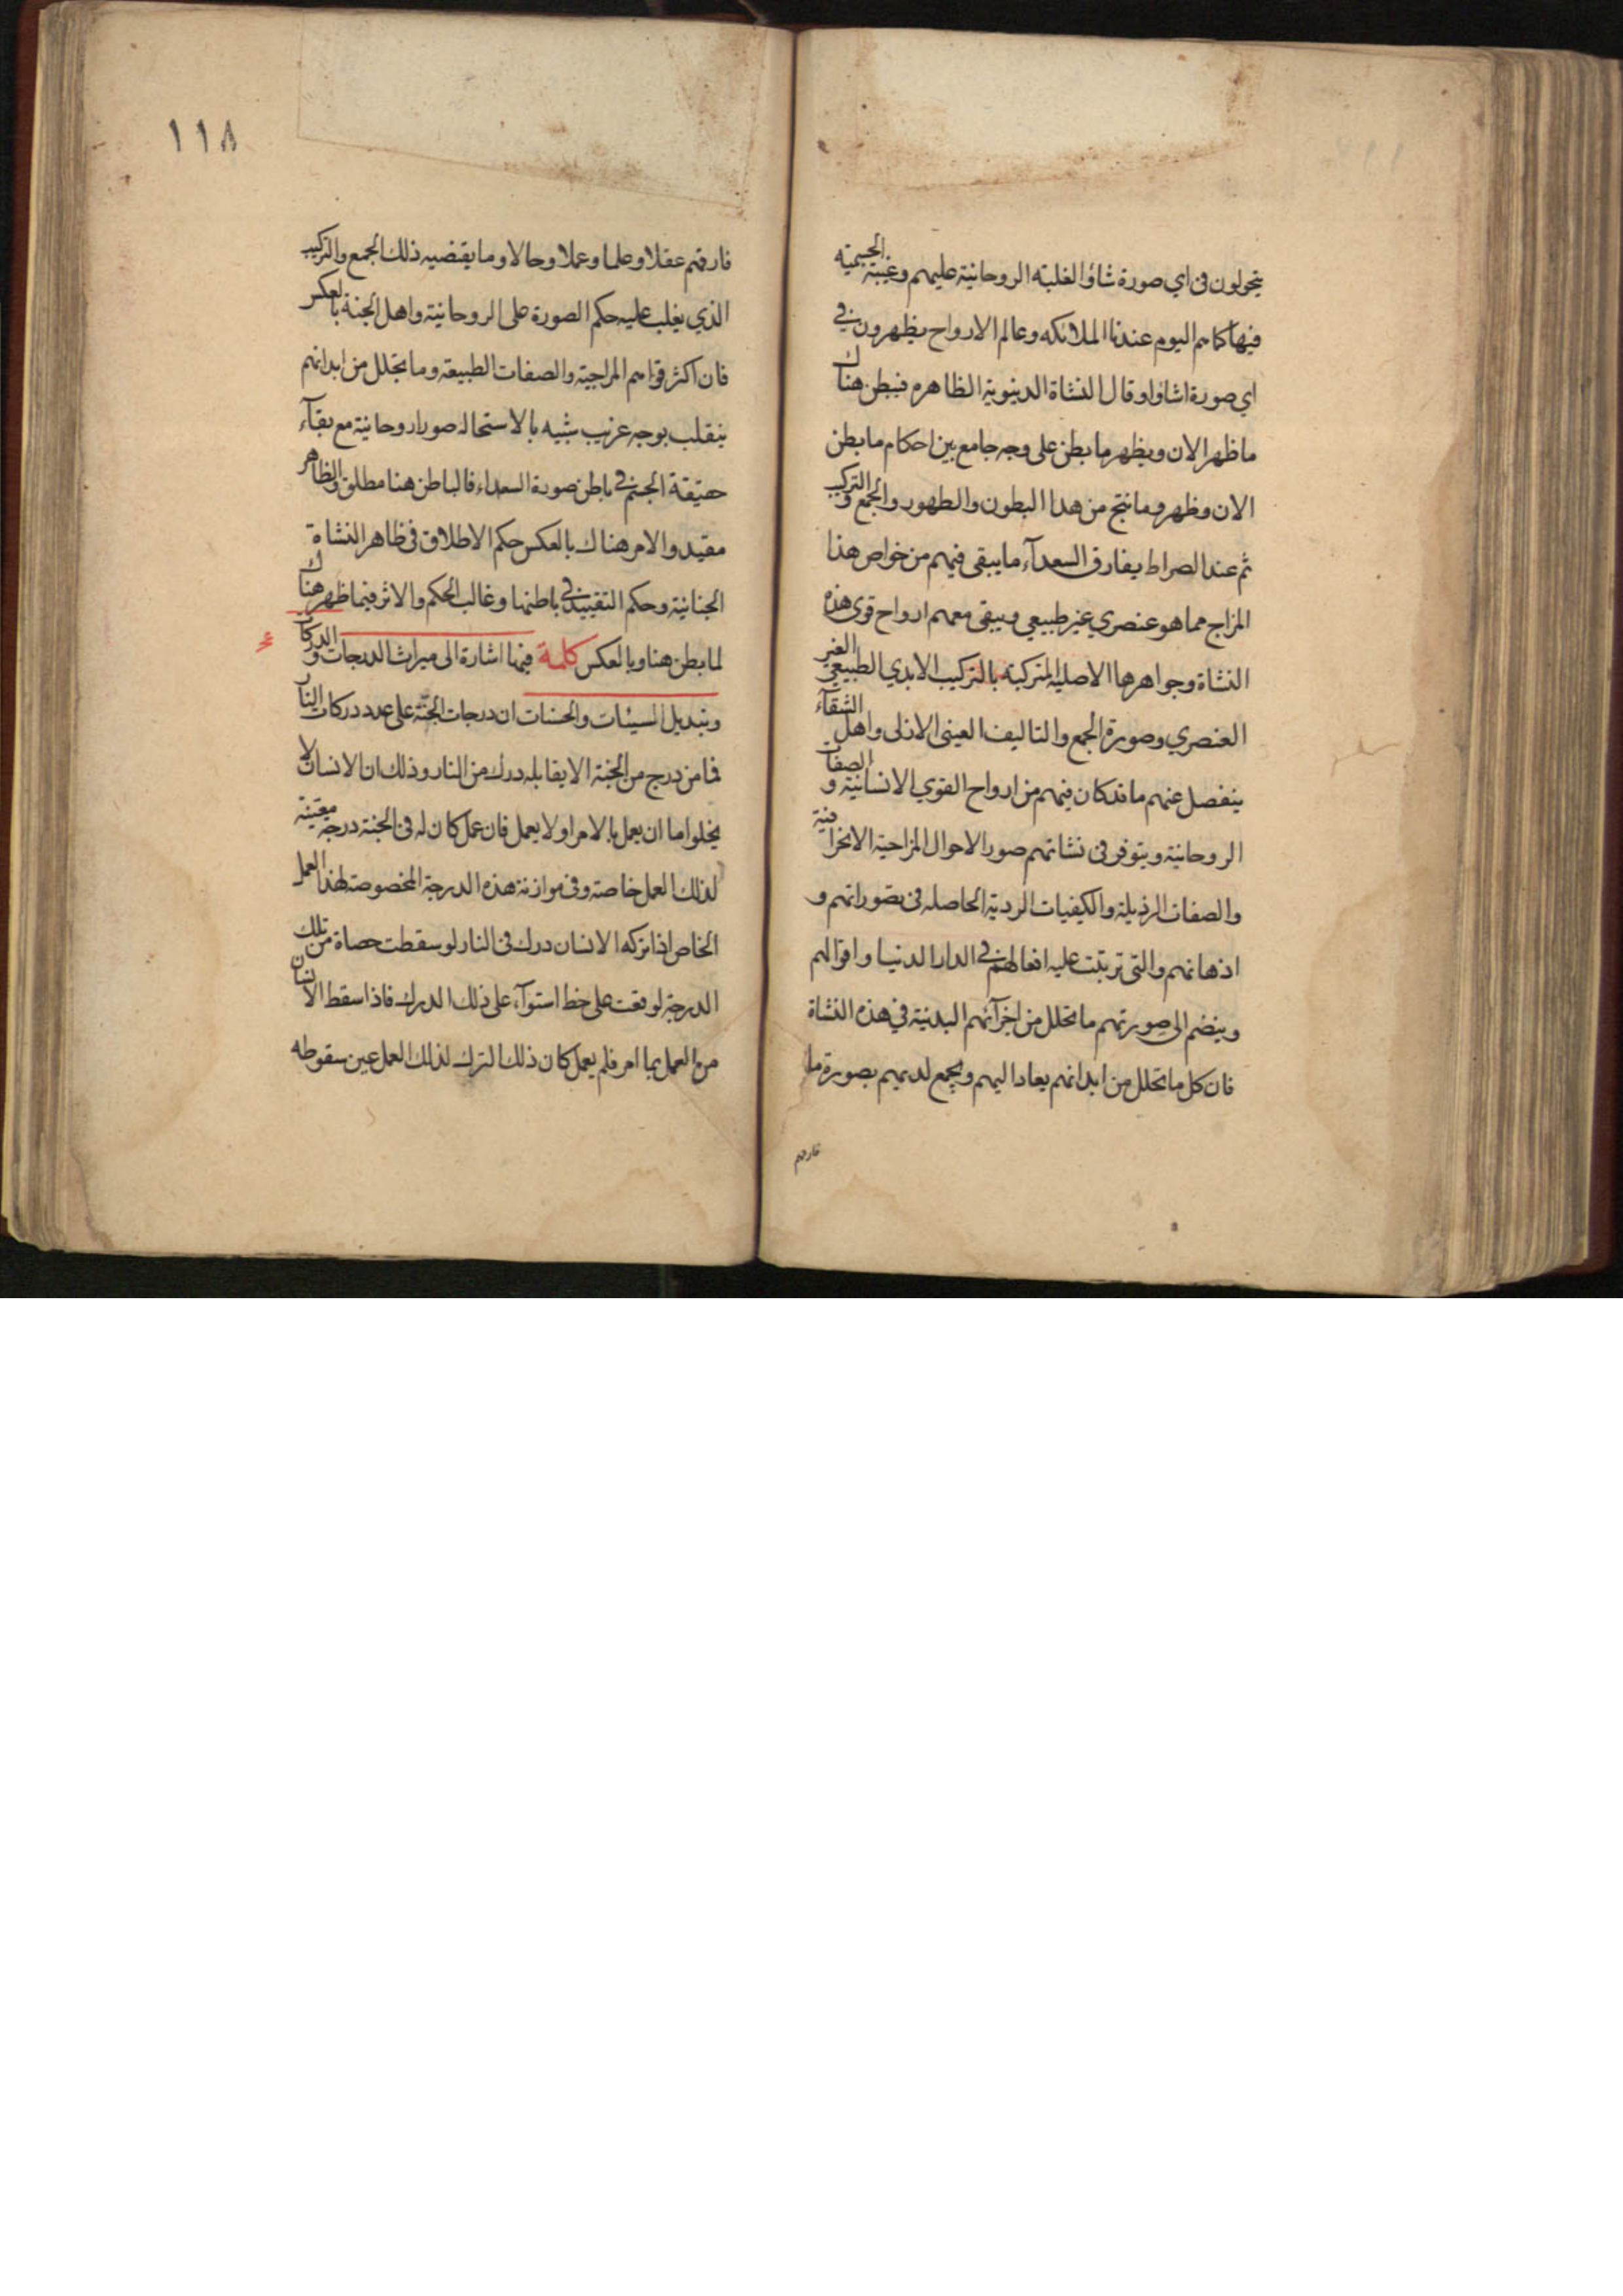 يتحولون في اي صورة شاؤا لغلبة الروحانية عليهم وغيبة الجسمية
فيها كما هم اليوم عندنا الملائكه وعالم الارواح يظهرون في
اي صورة اشاؤا وقال النشاة الدنيوية الظاهرة فيبطن هناك
ما ظهر الان ويظهر ما بطن على وجه جامع بين احكام ما بطن
الان وظهر وما نتج من هذا البطون والظهور والجمع والتركيب
ثم عند الصراط يفارق السعدآء ما يبقى فيهم من خواص هذا
المزاج مما هو عنصري غير طبيعي ويبقى معهم ارواح قوى هذه
النشاة وجواهرها الاصلية المتركبة بالتركيب الابدي الطبيعي الغير
العنصري وصورة الجمع والتاليف العيني الازلي واهل الشقآء
ينفصل عنهم ما قد كان فيهم من ارواح القوي الانسانية والصفات
الروحانية ويتوفر في نشاتهم صور الاحوال المزاجية الانحرافية
والصفات الرذيلة والكيفيات الردية الحاصله في تصوراتهم و
اذهانهم والتي ترتبت عليه افعالهم في الدار الدنيا واقوالهم
وينضم الى صورتهم ما تحلل من اجزآئهم البدنية في هذه النشاة
فان كل ما تحلل من ابدانهم يعاد اليهم ويجمع لديهم بصورة ما
فارقهم
١١٨
فارقهم عقلا وعلما وعملا وحالا وما يقضيه ذلك الجمع والتركيب
الذي يغلب عليه حكم الصورة على الروحانية واهل الجنة بالعكس
فان اكثر قواهم المزاجية والصفات الطبيعة وما تحلل من ابدانهم
ينقلب بوجه غريب شبيه بالاستحالة صورا روحانية مع بقآء
حقيقة الجسم في باطن صورة السعداء فالباطن هنا مطلق والظاهر
مقيد والامر هناك بالعكس حكم الاطلاق في ظاهر النشاة
الجنانية وحكم التقييد في باطنها وغالب الحكم والاثر فيما ظهر هناك
لما بطن هنا وبالعكس كلمة فيها اشارة الى ميراث الدرجات والدركات
وتبديل السيئات والحسنات ان درجات الجنة على عدد دركات النار
فما من درج من الجنة الا يقابله درك من النار وذلك ان الانسان لا
يخلوا اما ان يعمل بالامر او لا يعمل فان عمل كان له في الجنة درجة معينة
لذلك العمل خاصة وفي موازنة هذه الدرجة المخصوصة لهذا العمل
الخاص اذا تركه الانسان درك في النار لو سقطت حصاة من تلك
الدرجة لوقعت على خط استوآء على ذلك الدرك فاذا سقط الانسان
من العمل بما امر فلم يعمل كان ذلك الترك لذلك العمل عين سقوطه